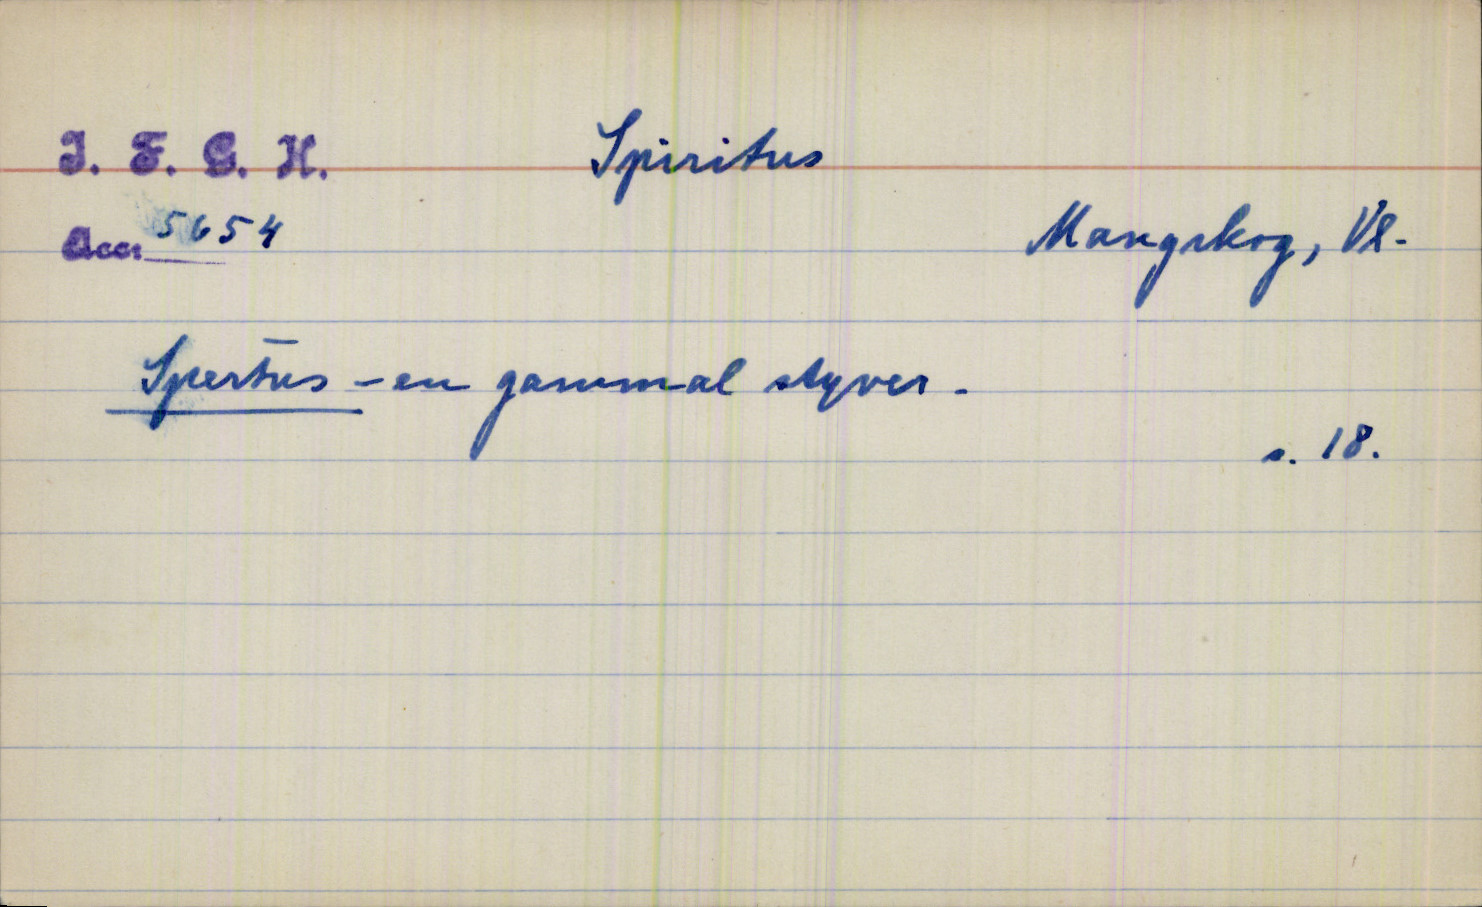 I. F. G. H. Spiritus
Acc. 5654 Mangskog, Vl.
Spertus - en gammal styver.
s. 18.